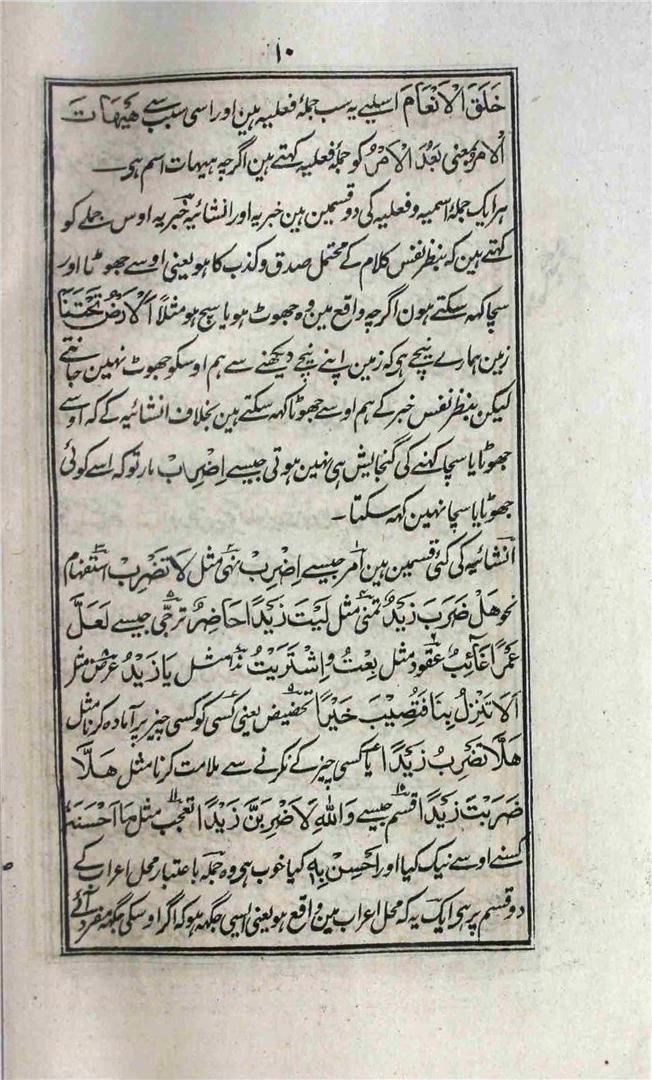 ۱۰
خَلَقَ الْاَنْعَامَ اسلیے یہ سب جملۂ فعلیہ ہین اور اسی سبب سے هَيْهَاتَ
الْاَمْرُ بمعنی بَعُدَ الْاَمْرُ کو جملۂ فعلیہ کہتے ہین اگرچہ ہیہات اسم ہی۔
ہر ایک جملۂ اسمیہ و فعلیہ کی دو قسمین ہین خبریہ اور انشائیہ خبریہ اوس جملے کو
کہتے ہین کہ بنظر نفس کلام کے محتمل صدق و کذب کا ہو یعنی اوسے جھوٹا اور
سچا کہہ سکتے ہون اگرچہ واقع مین وہ جھوٹ ہو یا سچ ہو مثلاً اَلْاَرْضُ تَحْتَنَا
زمین ہمارے نیچے ہو کہ زمین اپنے نیچے دیکھنے سے ہم اوسکو جھوٹ نہین جانتے
لیکن بنظر نفس خبر کے ہم اوسے جھوٹا کہہ سکتے ہین بخلاف انشائیہ کے کہ اوسے
جھوٹا یا سچا کہنے کی گنجایش ہی نہین ہوتی جیسے اِضْرِبْ مار تو کہ اسے کوئی
جھوٹا یا سچا نہین کہہ سکتا۔
انشائیہ کی کئی قسمین ہین امر جیسے اِضْرِبْ نہی مثل لَا تَضْرِبْ استفہام
نحو هَلْ ضَرَبَ زَيْدٌ تمنی مثل لَيْتَ زَيْدًا حَاضِرٌ ترجّی جیسے لَعَلَّ
عَمْرًا غَائِبٌ عقود مثل بِعْتُ و اِشْتَرَيْتُ ندا مثل يَا زَيْدُ عرض مثل
اَلَا تَنْزِلُ بِنَا فَتُصِيْبَ خَيْرًا تحضیض یعنی کسی کو کسی چیز پر آمادہ کرنا مثل
هَلَّا تَضْرِبُ زَيْدًا یا کسی چیز کے نکرنے سے ملامت کرنا مثل هَلَّا
ضَرَبْتَ زَيْدًا قسم جیسے وَاللهِ لَاَضْرِبَنَّ زَيْدًا تعجب مثل مَا اَحْسَنَهٗ
کسنے اوسے نیک کیا اور اَحْسِنْ بِهٖ کیا خوب ہی وہ جملہ باعتبار محل اعراب کے
دو قسم پر ہی ایک یہ کہ محل اعراب مین واقع ہو یعنی ایسی جگہہ ہو کہ اگر اوسکی جگہہ مفرد آئے